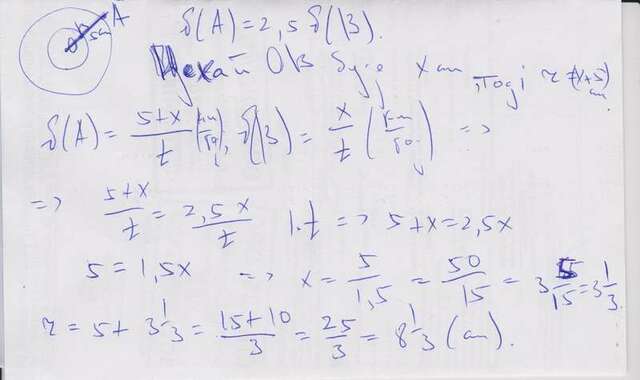 A
O B 5см
𝒱(A) = 2,5 𝒱(B).
Нехай OB буде x см, тоді r = (x+5) см
𝒱(A) = (5+x)/t (км/год), 𝒱(B) = x/t (км/год) =>
=> (5+x)/t = 2,5x/t |·t => 5+x = 2,5x
5 = 1,5x => x = 5/1,5 = 50/15 = 3 5/15 = 3 1/3.
r = 5 + 3 1/3 = (15+10)/3 = 25/3 = 8 1/3 (см).